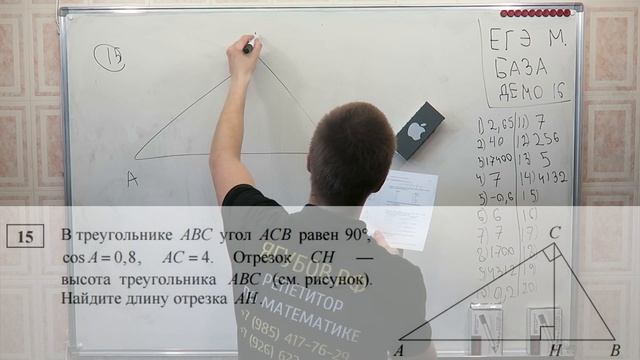 15
ЕГЭ М.
БАЗА
ДЕМО 16
1) 2,65
2) 40
3) 17400
4) 7
5) -0,6
6) 6
7) 7
11) 7
12) 256
13) 5
14) 4132
15)
16)
17)
A
15
В треугольнике ABC угол ACB равен 90°,
cos A = 0,8, AC = 4. Отрезок CH —
высота треугольника ABC (см. рисунок).
Найдите длину отрезка AH
ЯГУБОВ.РФ
РЕПЕТИТОР
ПО МАТЕМАТИКЕ
+7 (985) 417-76-29
C
A
H
B